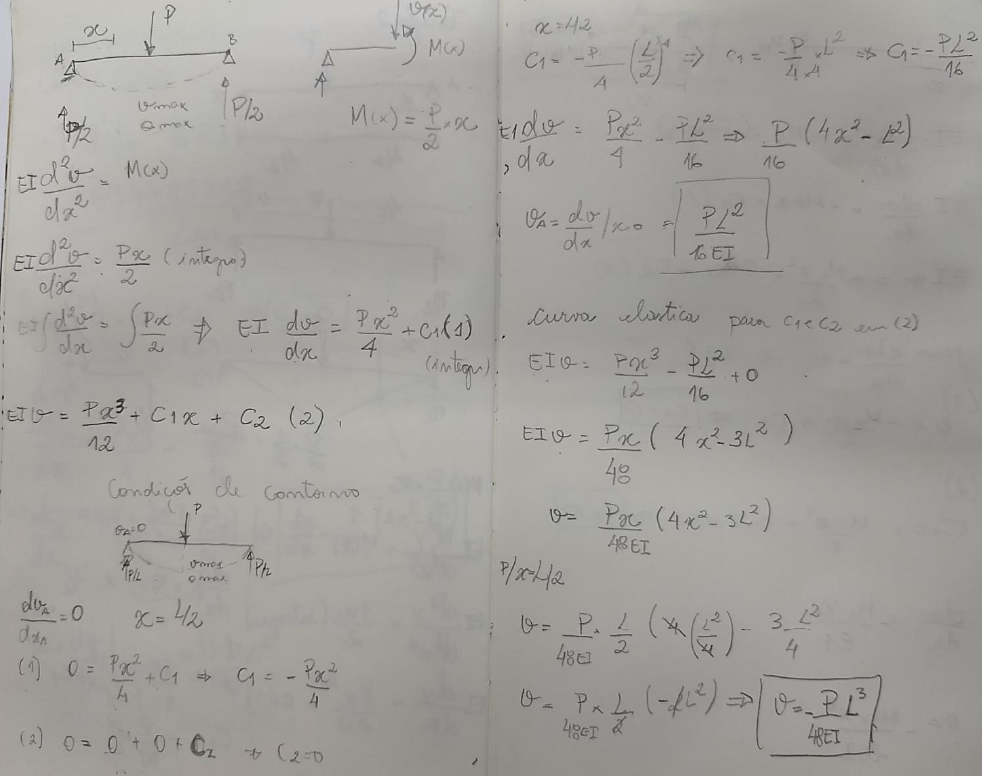 x
P
A
B
P/2
P/2
vmax
θmax
V(x)
M(x)
M(x) = P/2 . x
EI d²v/dx² = M(x)
EI d²v/dx² = Px/2 (integro)
EI∫ d²v/dx = ∫ Px/2 ⇒ EI dv/dx = Px²/4 + C1 (1)
(integro)
EIv = Px³/12 + C1x + C2 (2)
Condições de contorno
P
vA=0
P/2
P/2
vmax
θmax
dvA/dxA = 0 x = L/2
(1) 0 = Px²/4 + C1 ⇒ C1 = - Px²/4
(2) 0 = 0 + 0 + C2 → C2=0
x = L/2
C1 = -P/4 (L/2)² ⇒ C1 = -P/4.4 × L² ⇒ C1 = -PL²/16
EI dv/dx = Px²/4 - PL²/16 ⇒ P/16 (4x² - L²)
θA = dv/dx / x=0 = PL²/16EI
Curva elastica para C1 e C2 em (2)
EIv = Px³/12 - PL²/16 + 0
EIv = Px/48 (4x² - 3L²)
v = Px/48EI (4x² - 3L²)
P/x=L/2
v = P/48EI . L/2 (4(L²/4) - 3L²/4
v = P/48EI × L/2 (-2L²) ⇒ v = -PL³/48EI